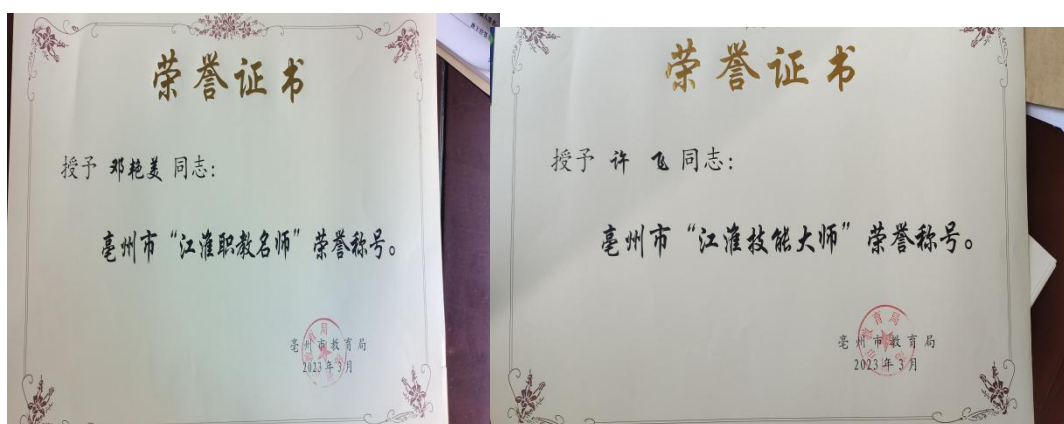 荣誉证书
授予 邓艳美 同志:
亳州市“江淮职教名师”荣誉称号。
亳州市教育局
2023年3月
荣誉证书
授予 许 飞 同志:
亳州市“江淮技能大师”荣誉称号。
亳州市教育局
2023年3月